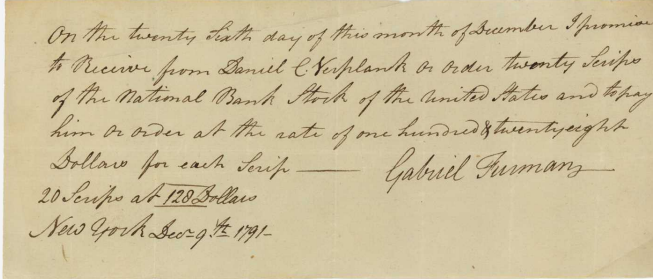 On the twenty Sixth day of this month of December I promise
to Receive from Daniel C. Verplank or order twenty Scrips
of the National Bank Stock of the United States and to pay
him or order at the rate of one hundred & twenty eight
Dollars for each Scrip —— Gabriel Furman
20 Scrips at 128 Dollars
New York Decr 9th 1791-